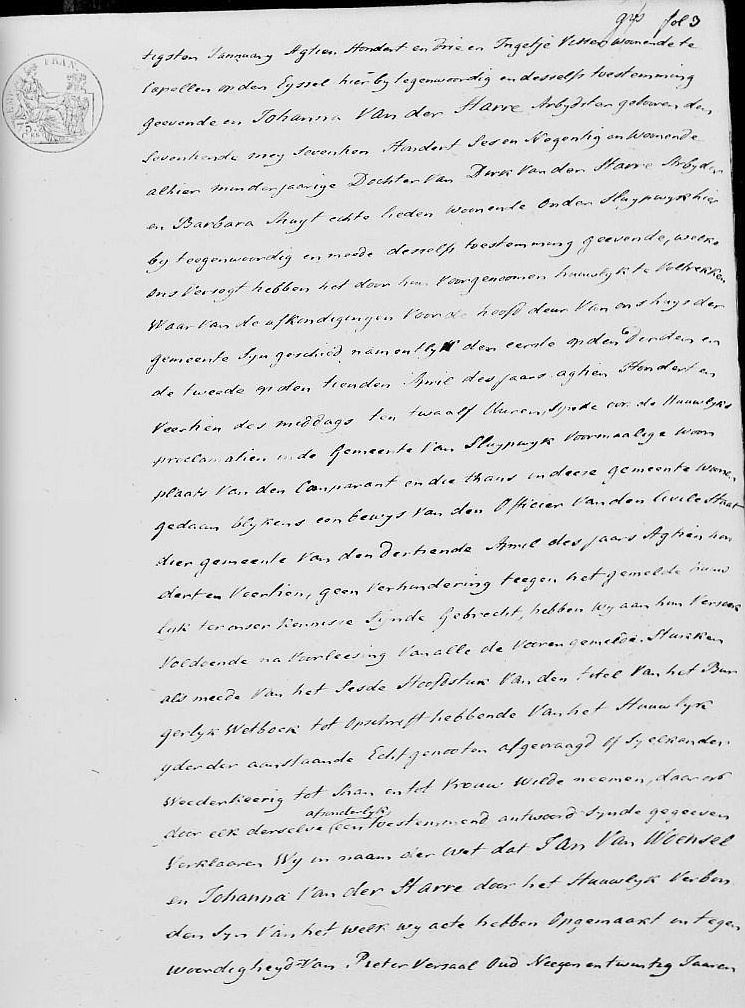 fol 3
tigsten Jannuary Agtien Hondert en drie en Ingetje Visser woonende te
Capellen op den Eyssel hier by tegenwoordig en desselfs toestemming
geevende en Johanna Van der Starre Arbydster gebooren den
Seventiende mey Seventien Hondert Ses en Negentig en Woonende
alhier minderjaarige Dochter Van Dirk Van der Starre Arbyder
en Barbara Shuyt echte lieden Woonende Onder Sluypwyk hier
by teegenwoordig en meede desselfs toestemming geevende, welke
ons Versogt hebben het door hun Voorgenoomen huuwlyk te Voltrekken
Waar Van de afkondigingen Voor de hoofd deur Van ons huys der
gemeente Syn geschied namentlyk den eerste op den Derden en
de tweede op den tienden April des jaars agtien Hondert en
Veertien des middags ten twaalf Uuren, Synde ook de Huuwlyks
proclamatien in de Gemeente Van Sluypwyk Voormaalige Woon
plaats Van den Comparant en die thans in deese gemeente Woonen
gedaan blykens een bewys Van den Officier Van den Civile Staat
dier gemeente Van den dertiende April des jaars Agtien hon
dert en Veertien, geen Verhindering teegen het gemelde huuw
lyk ter onser kennisse Synde Gebrecht, hebben wy aan hun Versoek
Voldoende na Voorleesing Van alle de Vooren gemelde Stukken
als meede Van het Sesde Hoofdstuk Van den titel Van het Bur
gerlyk Wetboek tot Opschrift hebbende Van het Huuwlyk
yder der aanstaande Echtgenooten afgevraagd of Sy elkander
Weederkeerig tot Man en tot Vrouw Wilde neemen, daar op
afzonderlyk
door elk derselve een toestemmend antwoord Synde gegeeven
Verklaaren Wy in naam der wet dat Jan Van Woensel
en Johanna Van der Starre door het Huuwlyk Verbon
den Syn Van het welk wy acte hebben Opgemaakt in tegen
woordigheyd Van Pieter Versaal Oud Neegen en twintig Jaaren